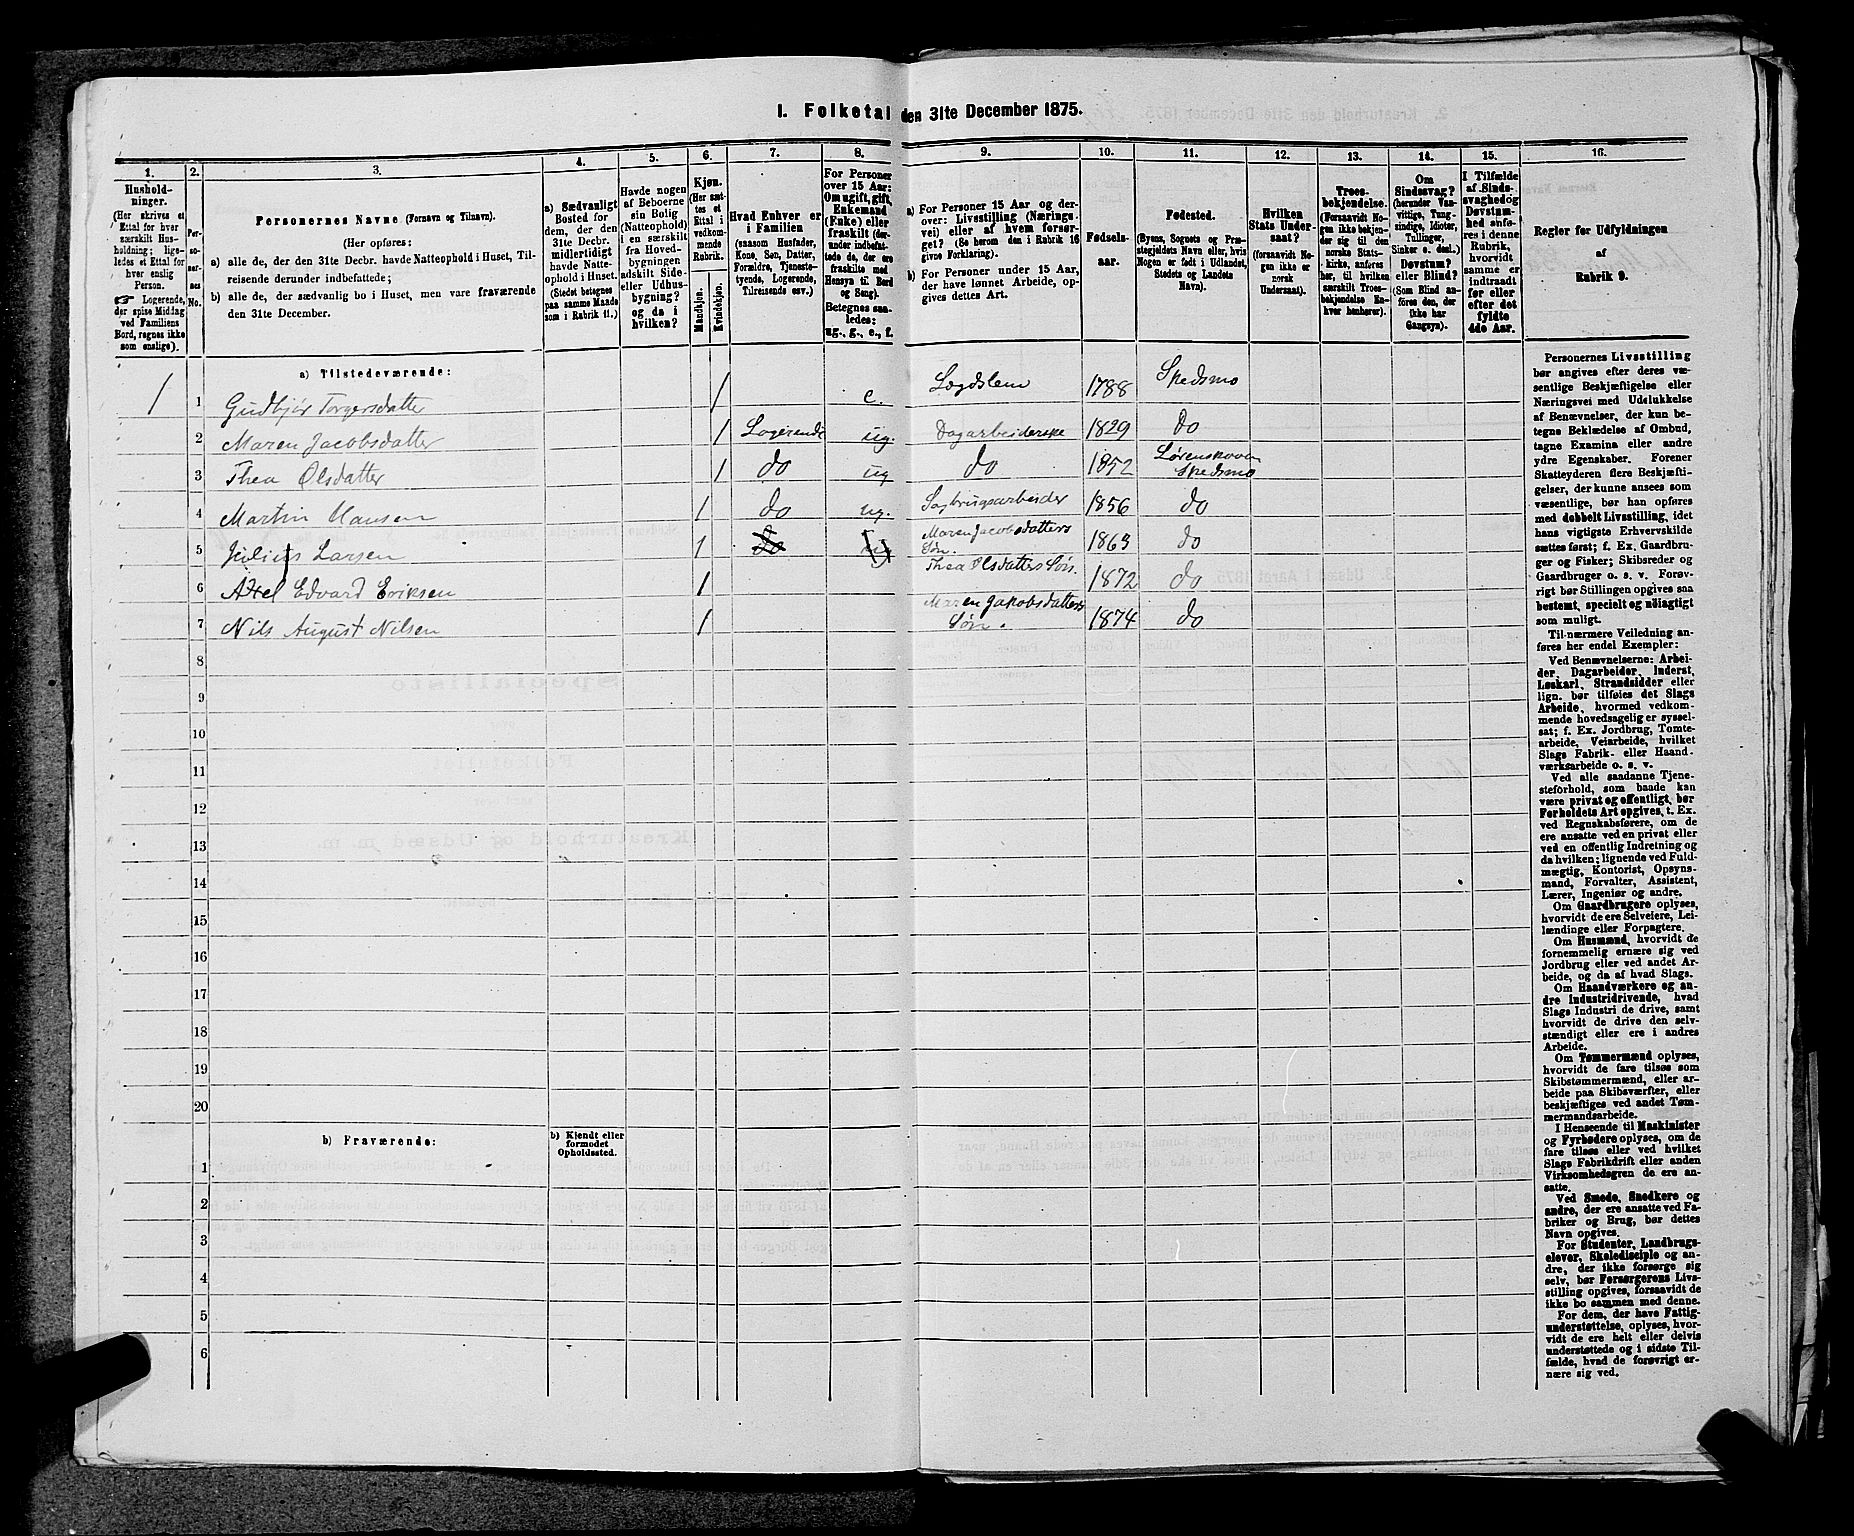 I. Folketal den 31te December 1875.
1.
2.
3.
4.
5.
6.
7.
8.
9.
10.
11.
12.
13.
14.
15.
16.
Hushold-
ninger.
(Her skrives et
Ettal for hver
særskilt Hus-
holdning; lige-
ledes et Ettal for
hver enslig
Person.
☞ Logerende,
der spise Middag
ved Familiens
Bord, regnes ikke
som enslige).
Per-
so-
ner-
nes
No.
Personernes Navne (Fornavn og Tilnavn).
(Her opføres:
a) alle de, der den 31te Decbr. havde Natteophold i Huset, Til-
reisende derunder indbefattede;
b) alle de, der sædvanlig bo i Huset, men vare fraværende
den 31te December.
a) Sædvanligt
Bosted for
dem, der den
31te Decbr.
midlertidigt
havde Natte-
ophold i Huset.
(Stedet betegnes
paa samme Maade
som i Rubrik 11.)
Havde nogen
af Beboerne
sin Bolig
(Natteophold)
i en særskilt
fra Hoved-
bygningen
adskilt Side-
eller Udhus-
bygning?
og da i
hvilken?
Kjøn.
(Her sæt-
tes et
Ettal i
vedkom-
mende
Rubrik.
Mandkjøn.
Kvindekjøn.
Hvad Enhver er
i Familien
(saasom Husfader,
Kone, Søn, Datter,
Forældre, Tjeneste-
tyende, Logerende,
Tilreisende osv.)
For Personer
over 15 Aar:
Om ugift, gift,
Enkemand
(Enke) eller
fraskilt (der-
under indbefat-
tede de, der ere
fraskilte med
Hensyn til Bord
og Seng).
Betegnes saa-
ledes:
ug., g., e., f.
a) For Personer 15 Aar og der-
over: Livsstilling (Nærings-
vei) eller af hvem forsør-
get? (Se herom den i Rubrik 16
givne Forklaring).
b) For Personer under 15 Aar,
der have lønnet Arbeide, op-
gives dettes Art.
Fødsels-
aar.
Fødested.
(Byens, Sognets og Præ-
stegjeldets Navn eller, hvis
Nogen er født i Udlandet,
Stedets og Landets
Navn).
Hvilken
Stats Under-
saat?
(forsaavidt No-
gen ikke er
norsk
Undersaat).
Troes-
bekjendelse.
(Forsaavidt No-
gen ikke bekjen-
der sig til den
norske Stats-
kirke, anføres
her, til hvilken
særskilt Troes-
bekjendelse En-
hver henhører).
Om
Sindssvag?
(herunder Van-
vittige, Tung-
sindige, Idioter,
Tullinger,
Sinker o. desl.)
Døvstum?
eller Blind?
(Som Blind an-
føres den, der
ikke har
Gangsyn).
I Tilfælde
af Sinds-
svaghed og
Døvstum-
hed anfø-
res i denne
Rubrik,
hvorvidt
samme er
indtraadt
før eller
efter det
fyldte
4de Aar.
Regler for Udfyldningen
af
Rubrik 9.
a) Tilstedeværende:
1 1 Gudbjør Torgersdatter 1 e. Lægdslem 1788 Skedsmo
2 Maren Jacobsdatter 1 Logerende ug. Dagarbeiderske 1829 do
3 Thea Olsdatter 1 do ug do 1852 Lørenskoven Skedsmo
4 Martin Hansen 1 do ug. Sagbrugsarbeider 1856 do
5 Julius Larsen 1 do ug Maren Jacobsdatters Søn. 1863 do
6 Axel Edvard Eriksen 1 Thea Olsdatters Søn. 1872 do
7 Nils August Nilsen 1 Maren Jakobsdatters Søn. 1874 do
8
9
10
11
12
13
14
15
16
17
18
19
20
b) Fraværende:
b) Kjendt eller
formodet
Opholdssted.
1
2
3
4
5
6
Personernes Livsstilling
bør angives efter deres væ-
sentlige Beskjæftigelse eller
Næringsvei med Udelukkelse
af Benævnelser, der kun be-
tegne Beklædelse af Ombud,
tagne Examina eller andre
ydre Egenskaber. Forener
Skatteyderen flere Beskjæfti-
gelser, der kunne ansees som
væsentlige, bør han opføres
med dobbelt Livsstilling, idet
hans vigtigste Erhvervskilde
sættes først; f. Ex. Gaardbru-
ger og Fisker; Skibsreder og
Gaardbruger o. s. v. Forøv-
rigt bør Stillingen opgives saa
bestemt, specielt og nøiagtigt
som muligt.
Til nærmere Veiledning an-
føres her endel Exempler:
Ved Benævnelserne: Arbei-
der, Dagarbeider, Inderst,
Løskarl, Strandsidder eller
lign. bør tilføies det Slags
Arbeide, hvormed vedkom-
mende hovedsagelig er syssel-
sat; f. Ex. Jordbrug, Tomte-
arbeide, Veiarbeide, hvilket
Slags Fabrik- eller Haand-
værksarbeide o. s. v.
Ved alle saadanne Tjene-
steforhold, som baade kan
være privat og offentligt, bør
Forholdets Art opgives, t. Ex.
ved Regnskabsførere, om de
ere ansatte ved en privat eller
ved en offentlig Indretning og
da hvilken; lignende ved Fuld-
mægtig, Kontorist, Opsyns-
mand, Forvalter, Assistent,
Lærer, Ingeniør og andre.
Om Gaardbrugere oplyses,
hvorvidt de ere Selveiere, Lei-
lændinge eller Forpagtere.
Om Husmænd, hvorvidt de
fornemmelig ernære sig ved
Jordbrug eller ved andet Ar-
beide, og da af hvad Slags.
Om Haandværkere og an-
dre industridrivende, hvad
Slags Industri de drive, samt
hvorvidt de drive den selv-
stændigt eller ere i andres
Arbeide.
Om Tømmermænd oplyses,
hvorvidt de fare tilsøs som
Skibstømmermænd, eller ar-
beide paa Skibsværfter, eller
beskjæftiges ved andet Tøm-
mermandsarbeide.
I Henseende til Maskinister
og Fyrbødere oplyses, om de
fare tilsøs eller ved hvilket
Slags Fabrikdrift eller anden
Virksomhedsgren de ere an-
satte.
Ved Smede, Snedkere og
andre, der ere ansatte ved Fa-
briker og Brug, bør dettes
Navn opgives.
For Studenter, Landbrugs-
elever, Skoledisciple og an-
dre, der ikke forsørge sig
selv, bør Forsørgerens Livs-
stilling opgives, forsaavidt de
ikke bo sammen med denne.
For dem, der have Fattig-
understøttelse, oplyses, hvor-
vidt de ere helt eller delvis
understøttede og i sidste Til-
fælde, hvad de forøvrigt er-
nære sig ved.